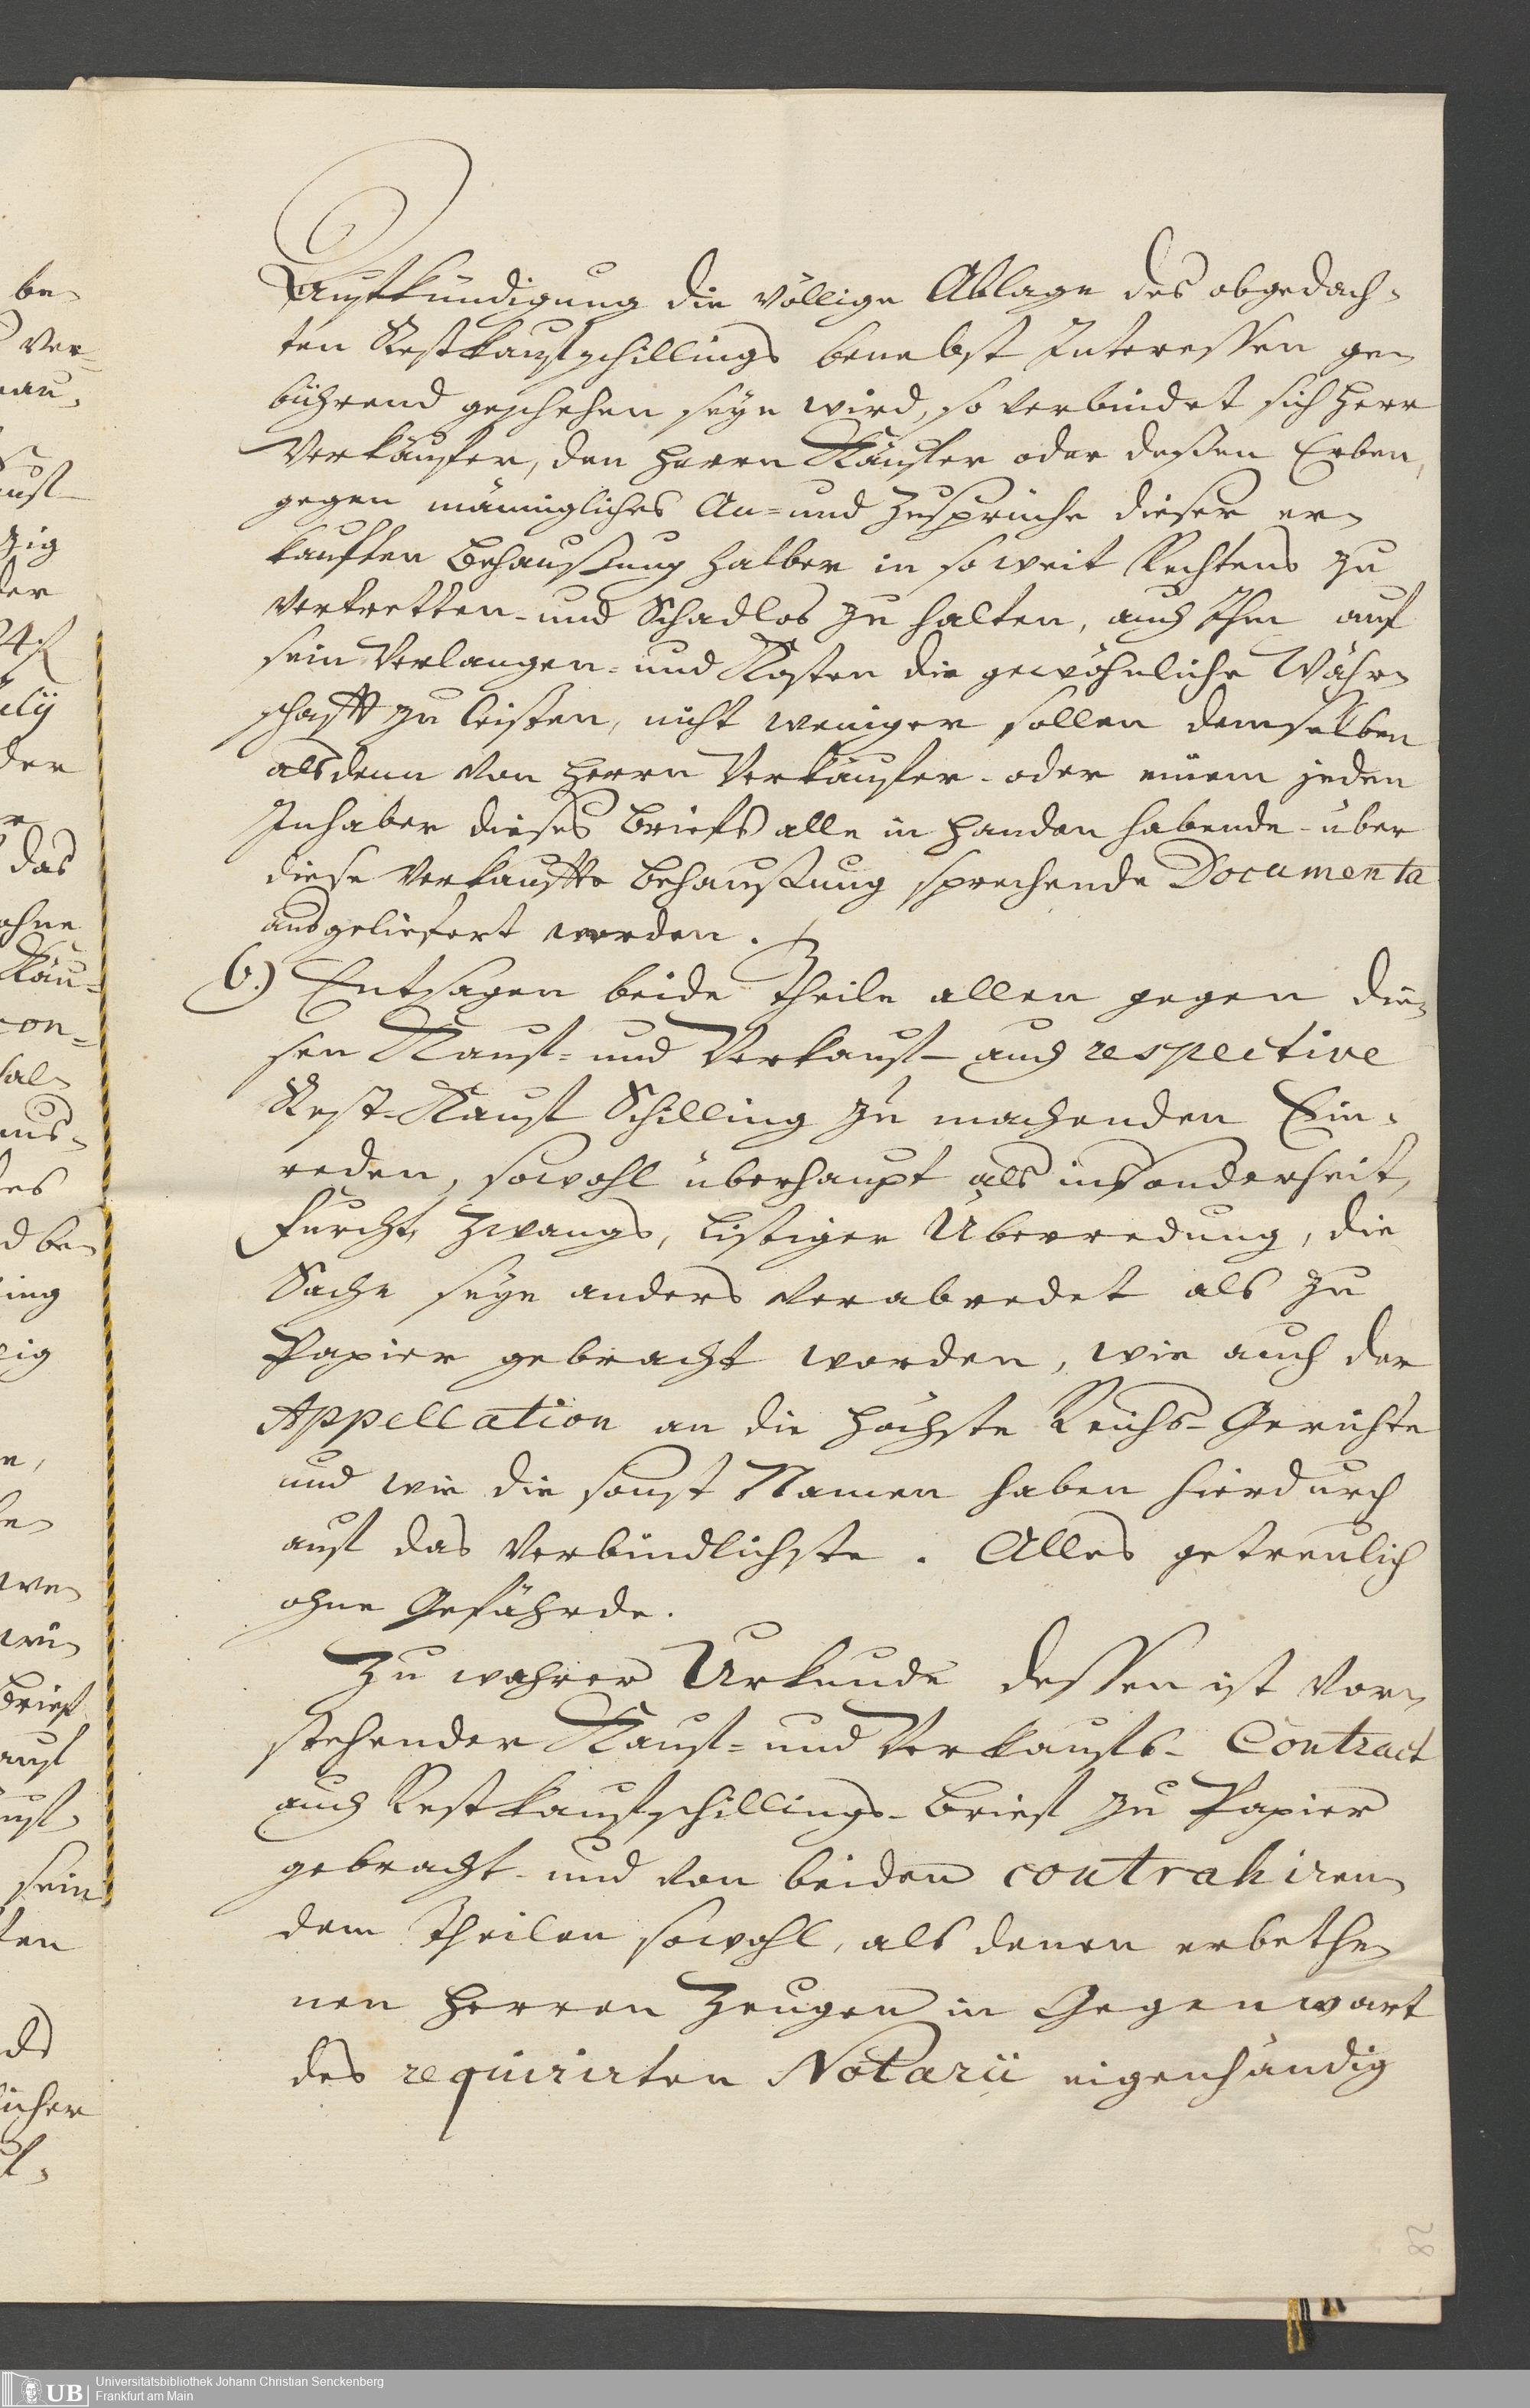 Auffkündigung die völlige Ablage des obgedach-
ten Restkauffschillings benebst Interessen ge-
bührend geschehen seyn wird, so verbindet sich Herr
Verkäuffer, den Herrn Käuffer oder deßen Erben,
gegen männigliches An= und Zusprüche dieser er-
kaufften Behaußung halber in soweit Rechtens zu
vertretten- und Schadlos zu halten, auch Ihm auf
sein Verlangen- und Kosten die gewöhnliche Währ-
schafft zu leisten, nicht weniger sollen demselben
alsdenn von Herrn Verkäuffer- oder einem jeden
Inhaber dieses Briefs alle in Handen habende- über
diese verkauffte Behaußung sprechende Documenta
ausgeliefert werden.
6.) Entsagen beide Theile allen gegen die-
sen Kauff= und Verkauff- auch respective
Rest-Kauff Schilling zu machenden Ein-
reden, sowohl überhaupt als insonderheit,
Furcht, Zwangs, listiger Überredung, die
Sache seye anders verabredet als zu
Papier gebracht worden, wie auch der
Appellation an die höchste Reichs-Gerichte
und wie die sonst Namen haben hierdurch
auff das verbindlichste. Alles getreulich
ohne Gefährde.
Zu wahrer Urkunde dessen ist vor-
stehender Kauff= und Verkauffs- Contract
auch Restkauffschillings-Brieff zu Papier
gebracht- und von beiden contrahiren-
dem Theilen sowohl, als denen erbethe-
nen Herren Zeugen in Gegenwart
des requirirten Notarii eigenhändig
28
UB Universitätsbibliothek Johann Christian Senckenberg
Frankfurt am Main